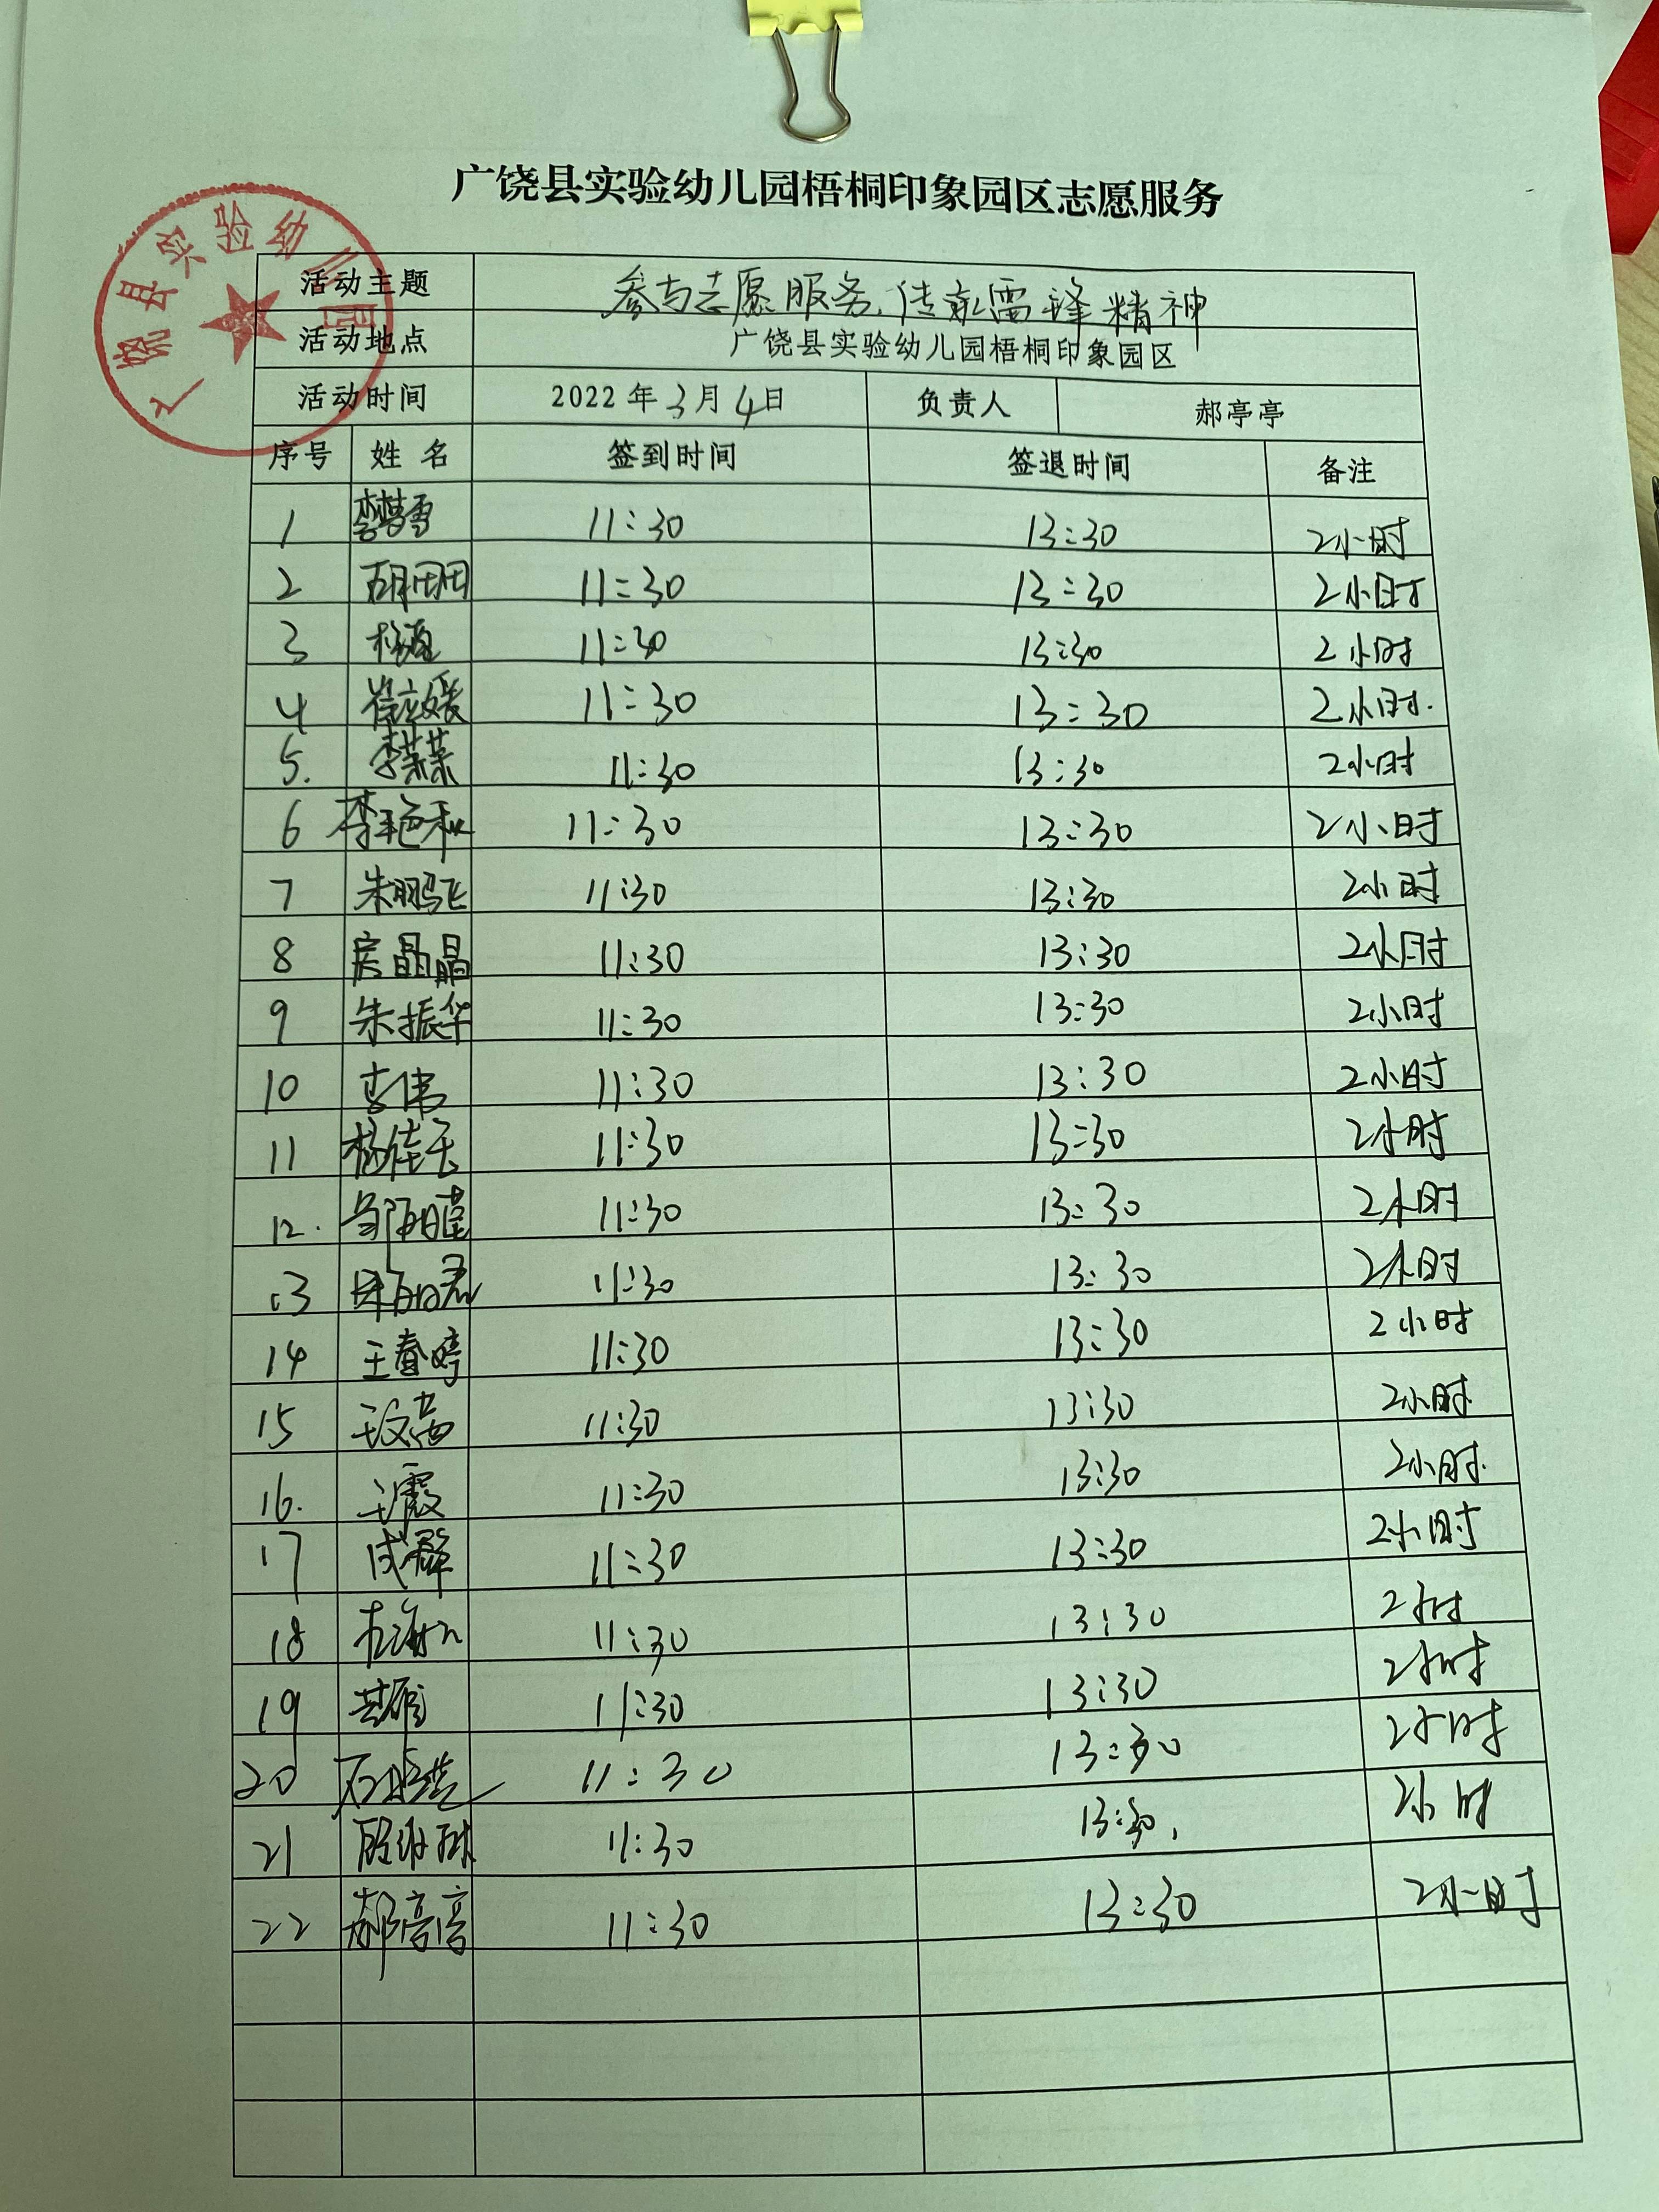 广饶县实验幼儿园梧桐印象园区志愿服务
广饶县实验幼儿园
活动主题 参与志愿服务,传承雷锋精神
活动地点 广饶县实验幼儿园梧桐印象园区
活动时间 2022年3月4日 负责人 郝亭亭
序号 姓名 签到时间 签退时间 备注
1 李梦雪 11:30 13:30 2小时
2 胡田田 11:30 13:30 2小时
3 11:30 13:30 2小时
4 11:30 13:30 2小时.
5. 11:30 13:30 2小时
6 李艳秋 11:30 13:30 2小时
7 朱鹏飞 11:30 13:30 2小时
8 房晶晶 11:30 13:30 2小时
9 朱振华 11:30 13:30 2小时
10 李伟 11:30 13:30 2小时
11 11:30 13:30 2小时
12. 11:30 13:30 2小时
13 11:30 13:30 2小时
14 王春婷 11:30 13:30 2小时
15 11:30 13:30 2小时
16. 王霞 11:30 13:30 2小时.
17 成群 11:30 13:30 2小时
18 11:30 13:30 2小时
19 11:30 13:30 2小时
20 11:30 13:30 2小时
21 11:30 13:30. 2小时
22 郝亭亭 11:30 13:30 2小时